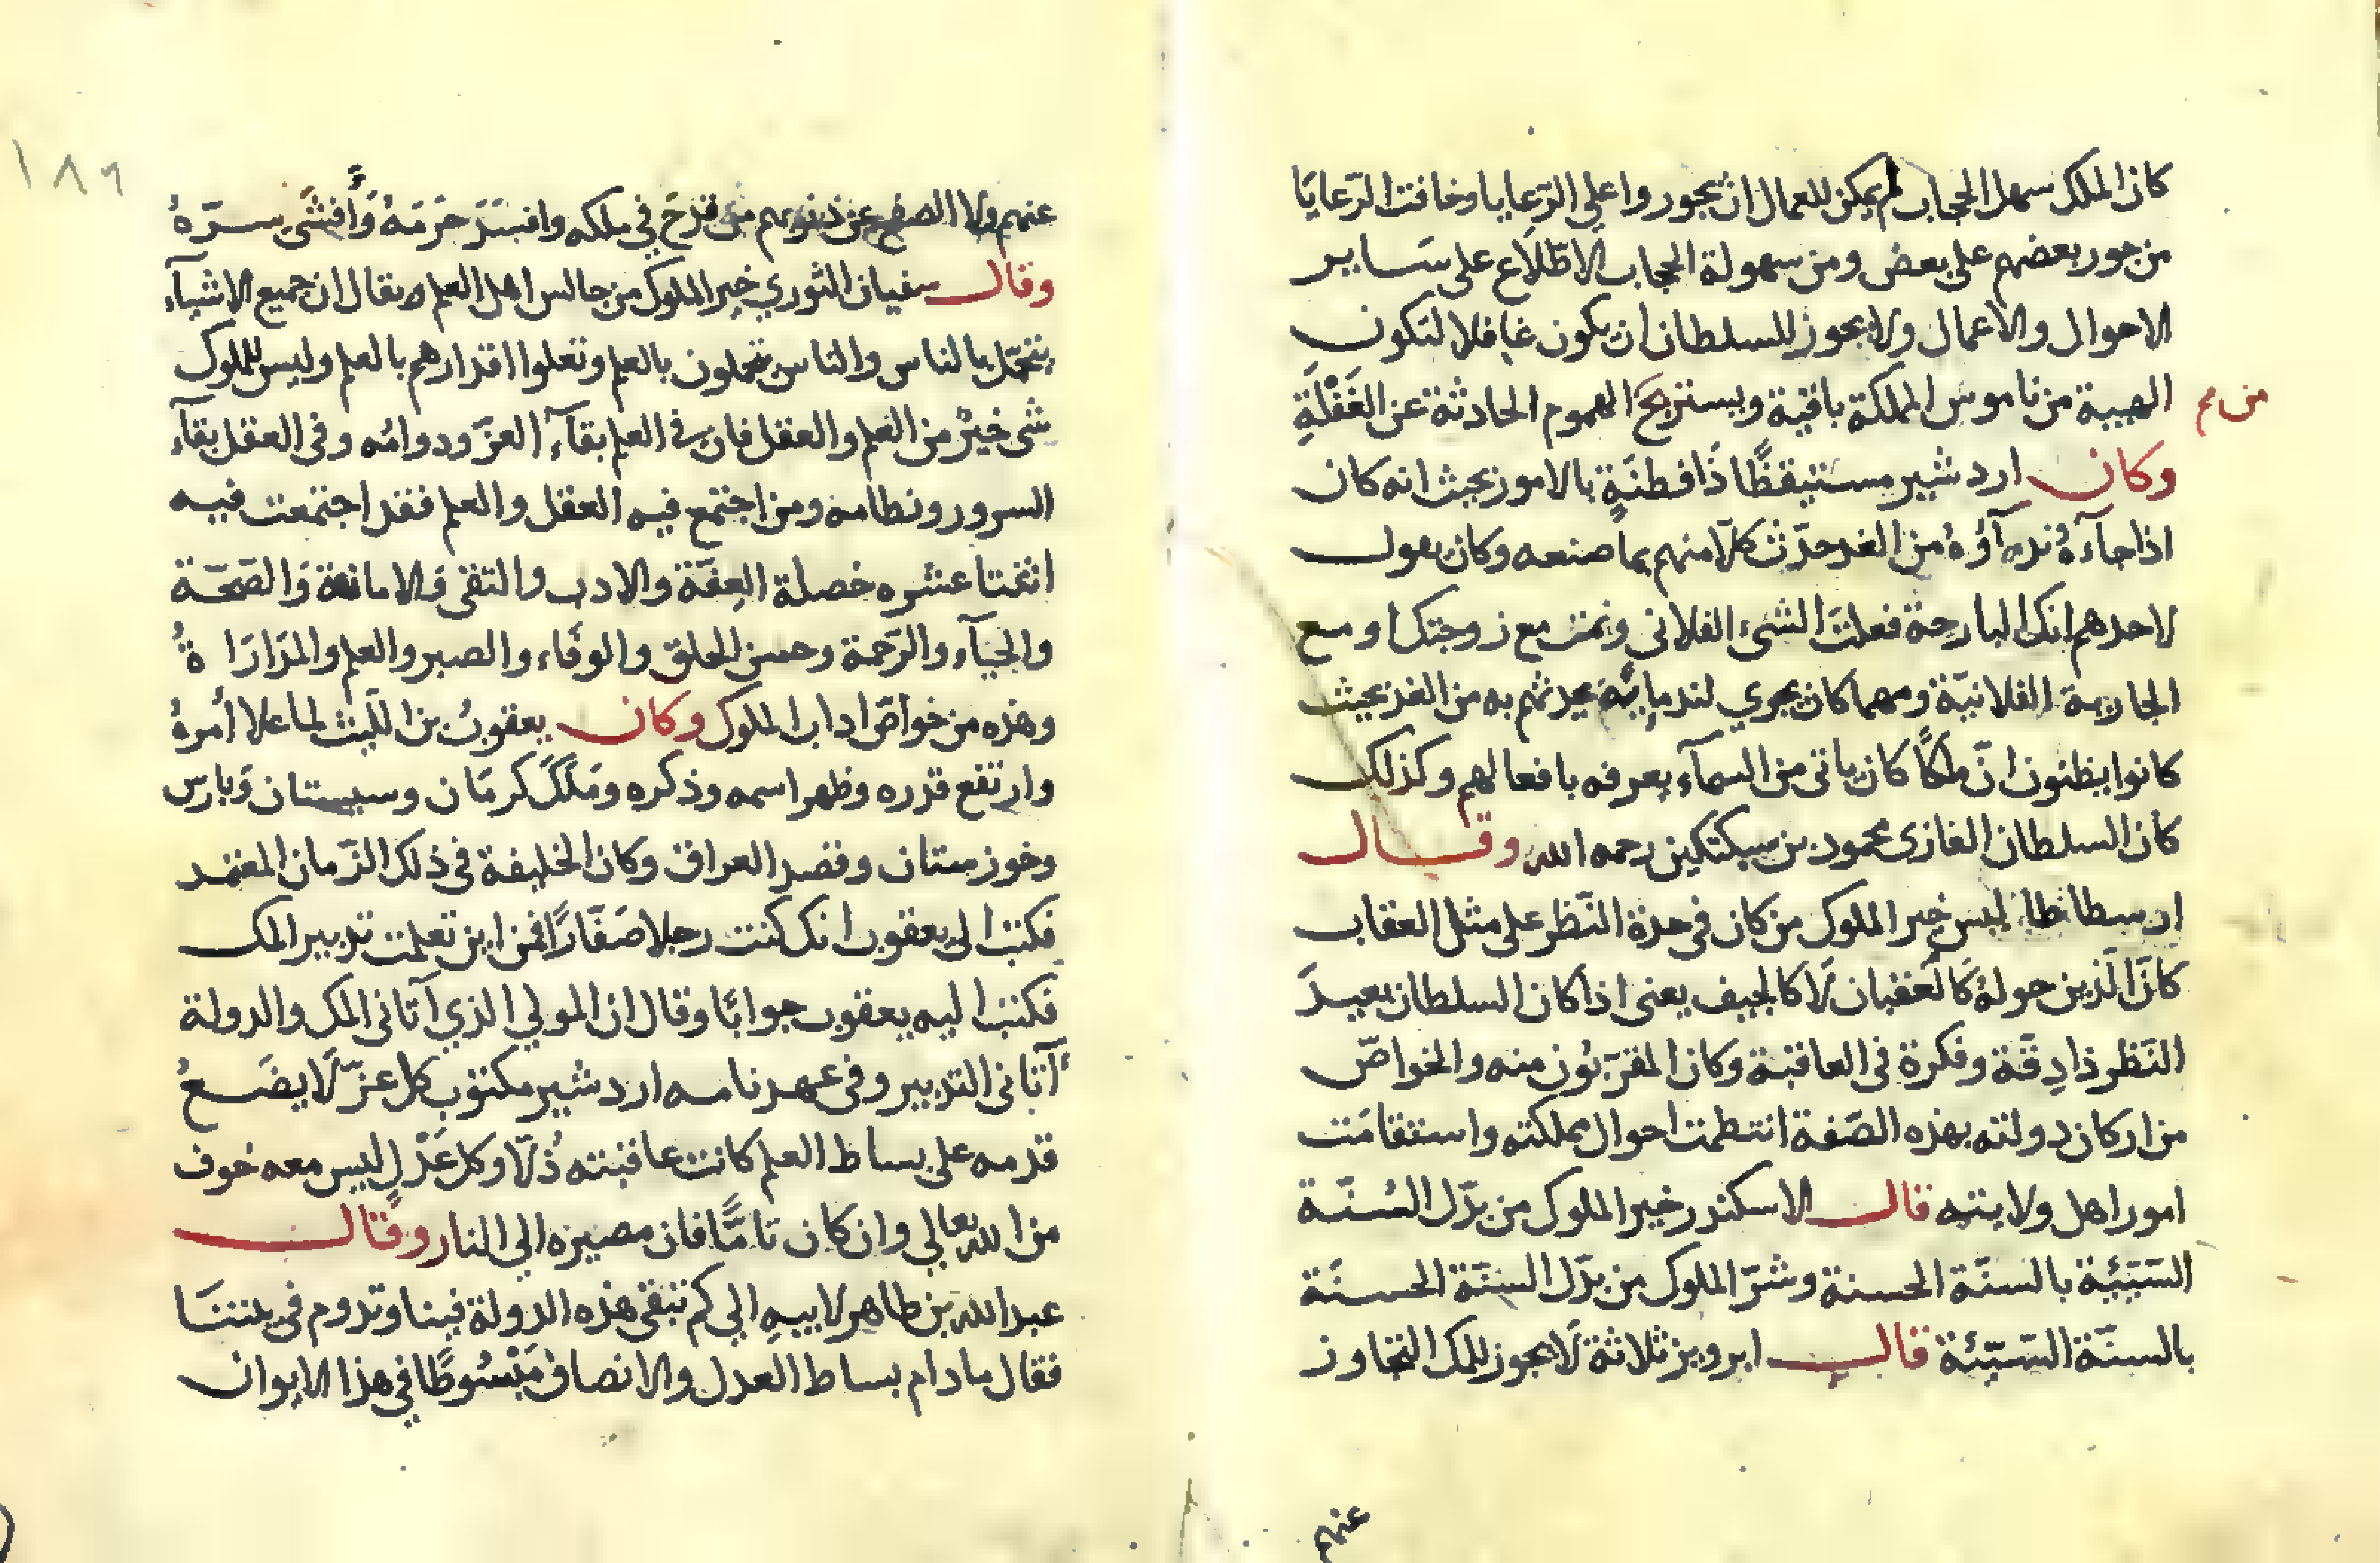 كان الملك سهل الحجاب لم يمكن للعمال ان يجوروا على الرّعايا وخافت الرّعايا
من جور بعضهم على بعض ومن سهولة الحجاب الاطّلاع على سَاير
الاحوال والاعمال ولا يجوز للسلطان ان يكون غافلا لتكون
الهيبة من ناموس المملكة باقية ويستريح الهموم الحادثة عن الغَفْلَةِ
من مم
وكان اردشير مستيقظًا ذا فطنَةٍ بالامور بحيث انه كان
اذا جآءهُ ندمآؤهُ من الغد حدّث كلّا منهم بما صنعه وكان يقول
لاحدهم انك البارحة فعلتَ الشىء الفلانى ونمت مع زوجتك او مع
الجارية الفلانيّة ومهما كان يجري لندمايئه يحدثهم به من الغد بحيث
كانوا يظنون انّ ملكًا كان ياتى من السمآء يعرفه بافعالهم وكذلك
كان السلطان الغازى محمود بن سبكتكين رحمه الله وقال
ارسطاطاليس خير الملوك من كان فى حدة النّظر على مثل العقاب
كانَ الّذين حولهُ كَالعقبان لَا كالجيف يعنى اذا كان السلطان بعيدَ
النّظر ذا دِقّة وفكرة فى العاقبة وكان المقرّبُون منه والخواصّ
من اركان دولته بهذه الصّفة انتظمت احوال مملكته واستقامَت
امور اهل ولايته قال الاسكندر خير الملوك من بدّل السُنّة
السّيّئة بالسنّة الحسنة وشرّ الملوك من بدّل السنّة الحسنَة
بالسنّة السّيّئة قال ابرويز ثلاثة لَا يجوز للملك التجاوز
عنهم
١٨٦
عنهم ولا الصفح عن ذنوبهم من قدحَ في ملكه وافسَدَ حَرَمَهُ وَأَفشَى سرّهُ
وقال سفيان الثوري خير الملوك من جالس اهل العلم ويقال ان جميع الاشيآء
يتجمّل بالناس والناس يتجملون بالعلم وتعلوا اقدارهم بالعلم وليس للملوك
شى خيرٌ من العلم والعقل فان فى العلم بقآء العزّ ودوامُه وفى العقل بقآء
السرور ونظامه ومن اجتمع فيه العقل والعلم فقد اجتمعت فيه
اثنتا عشره خصلة العِفّة والادب والتقى وَالامانة وَالصّحّة
والحيآء والرّحمة وحسن الخلق والوفَاء والصبر والعلم والمدَارَاةُ
وهذه من خواصّ اداب الملوك وكان يعقوبُ بن اللّيث لما علا أمرهُ
وارتفع قدره وظهر اسمه وذكره ومَلَكَ كرمَان وسيستان وَبارس
وخوزستان وقصد العراق وكان الخليفة فى ذلك الزّمان المعتمد
فكتب الى يعقوب انك كنت رجلا صَفّارًا فمن اين تعلمت تدبير الملك
فكتب اليه يعقوب جوابًا وقال ان المولي الذي آتانى الملك والدولة
آتانى التدبير وفى عهدنامه اردشير مكتوب كل عزّ لَا يضَعُ
قدمه على بساط العلم كانت عاقبته ذُلّا وكل عَدْلٍ ليس معه خوف
من الله تعالي وان كان تامًّا فان مصيره الي النار وقال
عبد الله بن طاهر لابيهِ الي كم تبقى هذه الدولة فينا وتدوم فى بيتنَا
فقال ما دام بساط العدل والانصاف مَبْسُوطًا في هذا الايوان